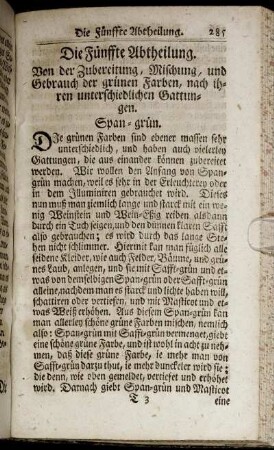 Die Fünffte Abtheilung. 285
Die Fünffte Abtheilung.
Von der Zubereitung, Mischung, und
Gebrauch der grünen Farben, nach ih-
ren unterschiedlichen Gattun-
gen.
Span-grün.
DJe grünen Farben sind ebener massen sehr
unterschiedlich, und haben auch vielerley
Gattungen, die aus einander können zubereitet
werden. Wir wollen den Anfang von Span-
grün machen, weil es sehr in der Erleuchterey oder
in dem Illuminiren gebrauchet wird. Dieses
nun muß man ziemlich lange und starck mit ein we-
nig Weinstein und Wein-Eßig reiben alsdann
durch ein Tuch seigen, und den dünnen klaren Safft
also gebrauchen; es wird durch das lange Ste-
hen nicht schlimmer. Hiermit kan man füglich alle
seidene Kleider, wie auch Felder, Bäume, und grü-
nes Laub, anlegen, und sie mit Safft-grün und et-
was von demselbigen Span-grün oder Safft-grün
allein, nachdem man es starck und lichte haben will,
schattiren oder vertiefen, und mit Masticot und et-
was Weiß erhöhen. Aus diesem Span-grün kan
man allerley schöne grüne Farben mischen, nemlich
also: Span-grün mit Safft-grün vermenget, giebt
eine schöne grüne Farbe, und ist wohl in acht zu neh-
men, daß diese grüne Farbe, je mehr man von
Safft-grün darzu thut, je mehr dunckeler wird sie:
die denn, wie oben gemeldet, vertiefet und erhöhet
wird. Darnach giebt Span-grün und Masticot
T 3 eine